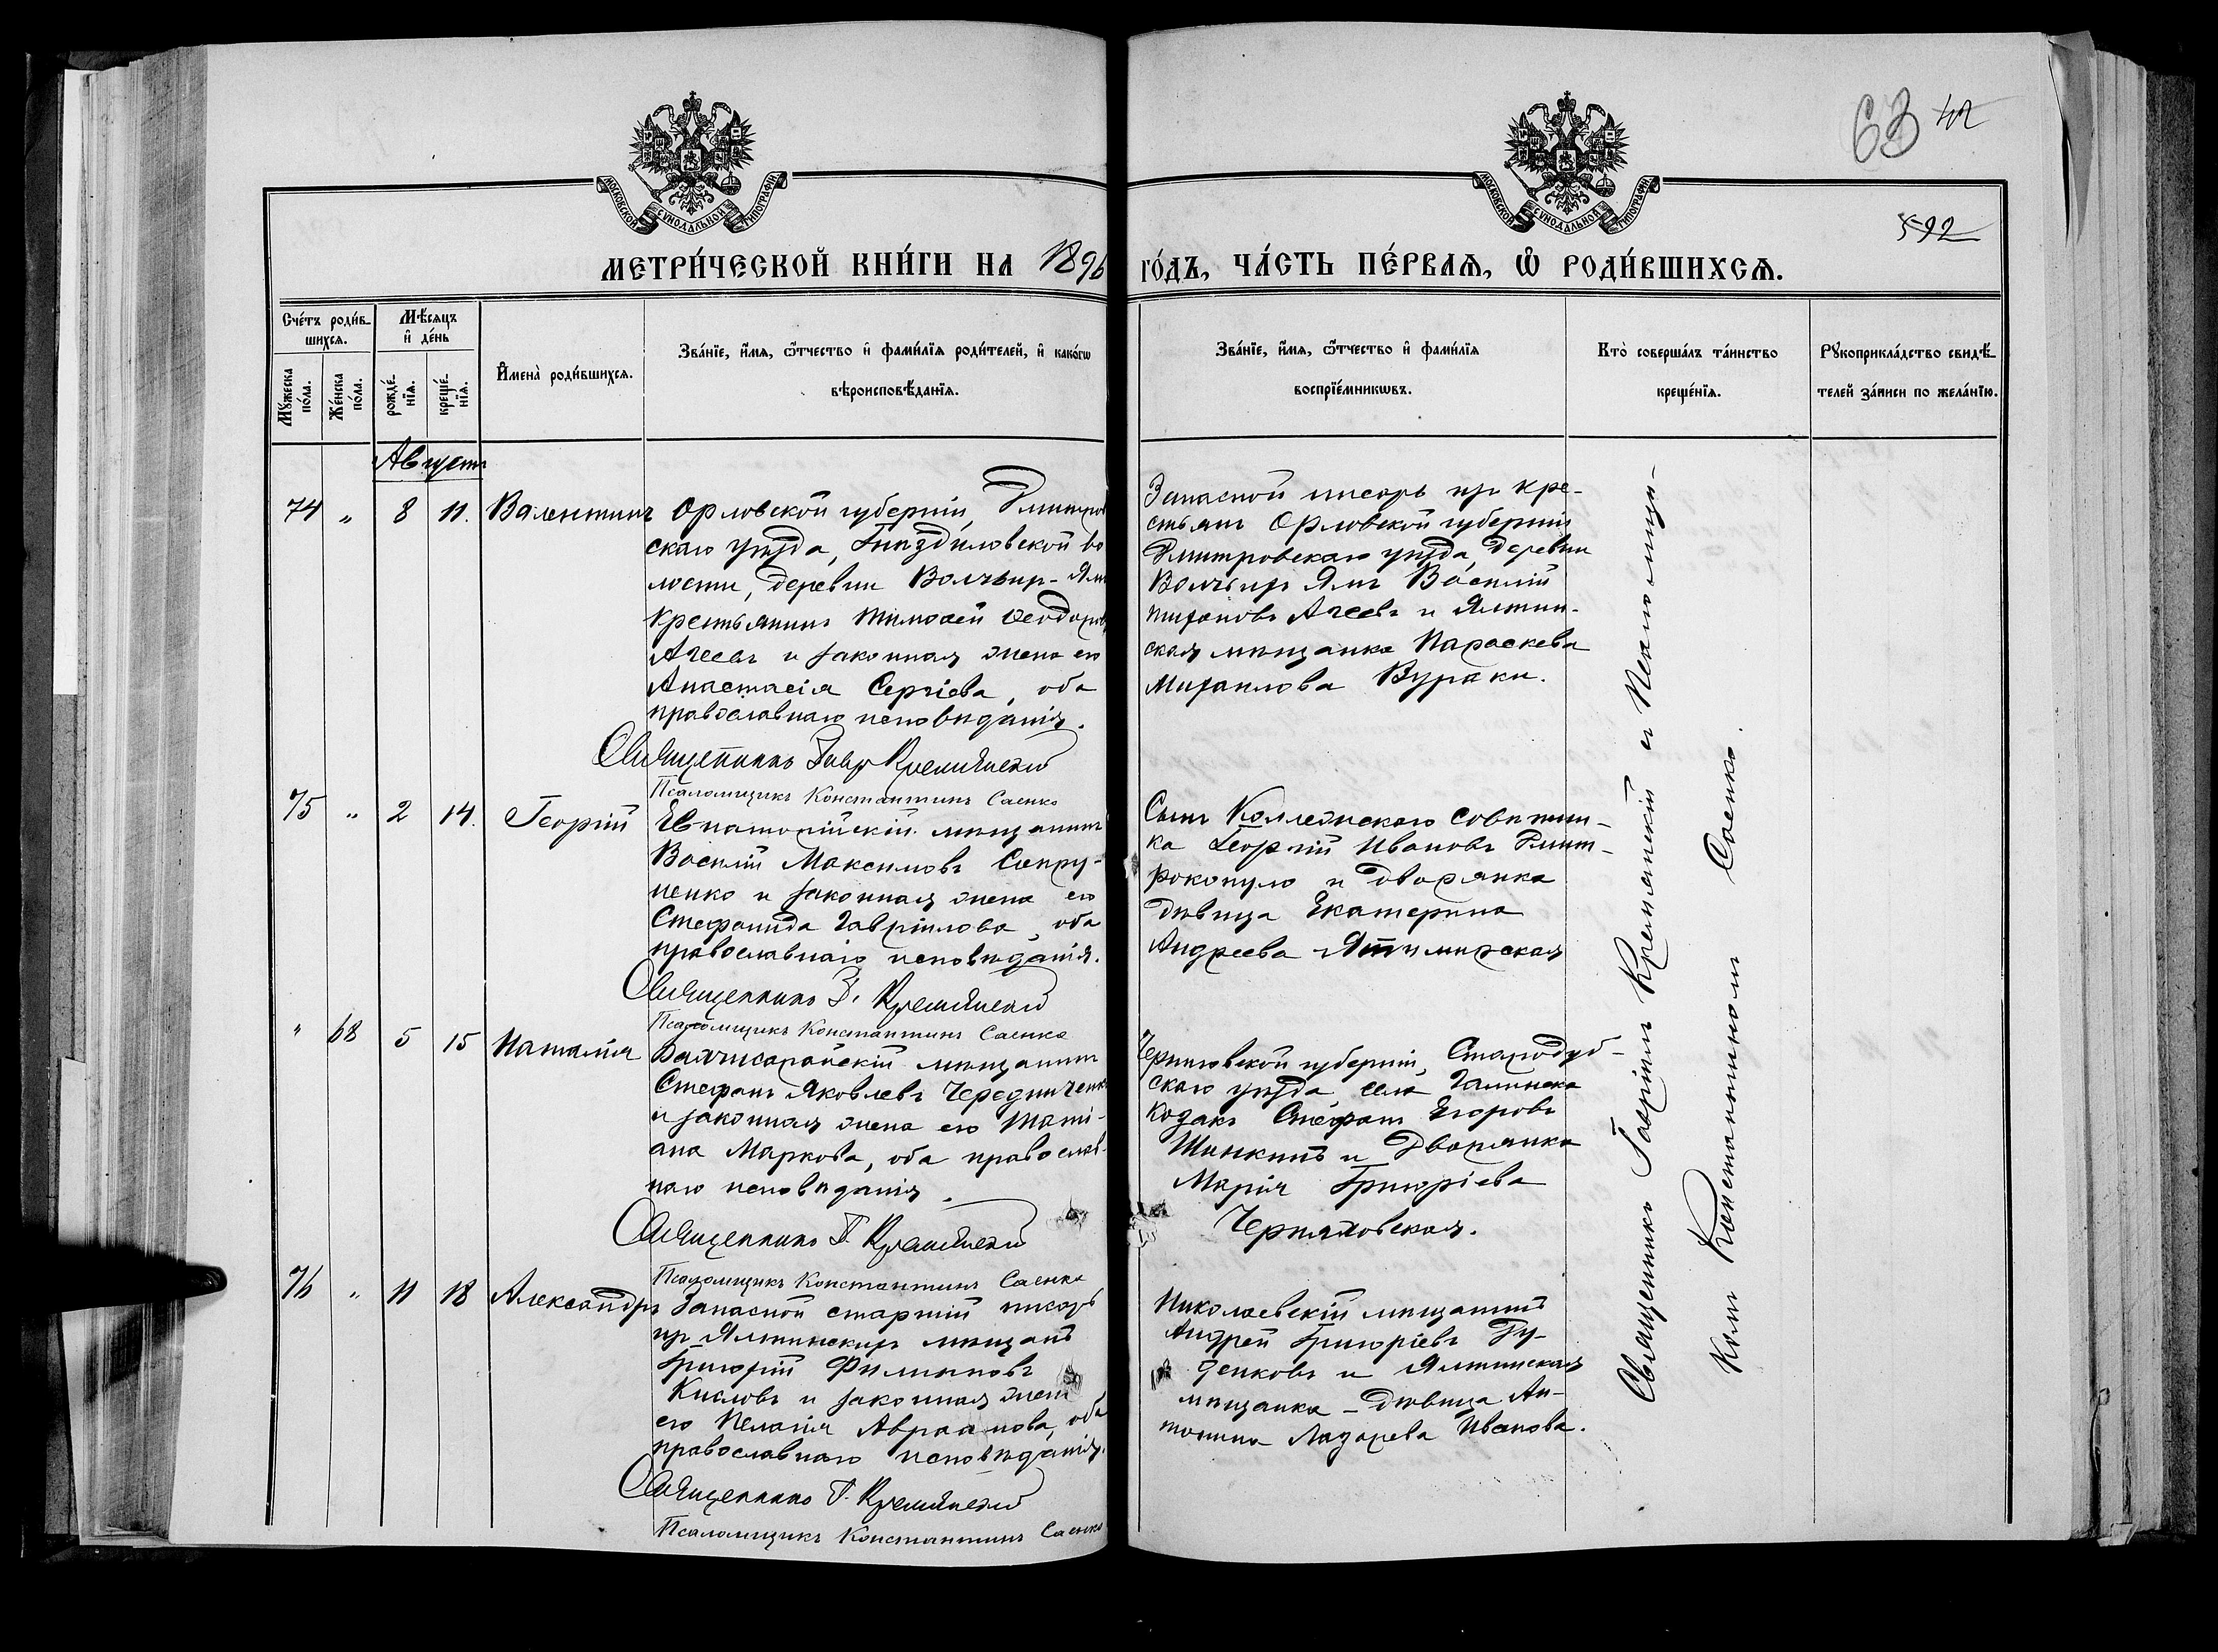 63
592
МОСКОВСКОЙ СѴНОДАЛЬНОЙ ТИПОГРАФІИ
МОСКОВСКОЙ СѴНОДАЛЬНОЙ ТИПОГРАФІИ
МЕТРИ́ЧЕСКОЙ КНИ́ГИ НА 1896 ГО́ДЪ, ЧА́СТЬ ПЕ́РВАѦ, Ѡ҆ РОДИ́ВШИХСѦ.
Сче́тъ роди́в-
шихсѧ.
Мꙋ́жеска по́ла.
Же́нска по́ла.
Мѣ́сяцъ
и҆ де́нь
рожде́-нїѧ.
креще́-нїѧ.
И҆мена̀ роди́вшихсѧ.
Зва́нїе, и҆́мѧ, ѻ҆́тчество и҆ фами́лїѧ роди́телей, и҆ како́гѡ
вѣроисповѣ́данїѧ.
Зва́нїе, и҆́мѧ, ѻ҆́тчество и҆ фами́лїѧ
воспрїе́мникѡвъ.
Кто̀ соверша́лъ та́инство
креще́нїѧ.
Рꙋкоприкла́дство свидѣ́-
телей за́писи по жела́нїю.
Августъ
74 " 8 11. Валентинъ
Орловской губерніи, Дмитров
скаго уѣзда, Гнѣздиловской во
лости, деревни Волчьихъ-Ямъ
крестьянинъ Тимоѳей Ѳеодоровъ
Агеевъ и законная жена его
Анастасія Сергіева, оба
православнаго исповѣданія.
Священникъ Гавр Кремянскій
Псаломщикъ Константинъ Саенко
Запасной писарь изъ кре-
стьянъ Орловской губерніи
Дмитровскаго уѣзда, деревни
Волчьихъ Ямъ Василій
Тихоновъ Агеевъ и Ялтин-
ская мѣщанка Параскева
Михаилова Вураки.
75 " 2 14. Георгій
Евпаторійскій мѣщанинъ
Василій Максимовъ Супру-
ненко и законная жена его
Стефанида Гавріилова, оба
православнаго исповѣданія.
Священникъ Г. Кремянскій
Псаломщикъ Константинъ Саенко
Сынъ Коллежскаго Совѣтни-
ка Георгій Ивановъ Дмит-
рокопуло и дворянка
дѣвица Екатерина
Андреева
" 68 5 15 Наталія
Бахчисарайскій мѣщанинъ
Стефанъ Яковлевъ Чередниченко
и законная жена его Тати-
ана Маркова, оба православ-
наго исповѣданія.
Священникъ Г. Кремянскій
Псаломщикъ Константинъ Саенко
Черниговской губерніи, Стародуб-
скаго уѣзда, села
козакъ Стефанъ Егоровъ
Шинкинъ и Дворянка
Марія Григоріева
Черняховская.
76 " 11 18 Александръ
Запасной старшій писарь
изъ Ялтинскихъ мѣщанъ
Григорій Филиповъ
Кисловъ и законная жена
его Пелагія Авраамова, оба
православнаго исповѣданія.
Священникъ Г. Кремянскій
Псаломщикъ Константинъ Саенко
Николаевскій мѣщанинъ
Андрей Григоріевъ Гу-
денковъ и Ялтинская
мѣщанка - дѣвица Ан-
тонина Лазарева Иванова.
Священникъ Гавріилъ Кремянскій съ Псаломщи-
комъ Константиномъ Саенко.